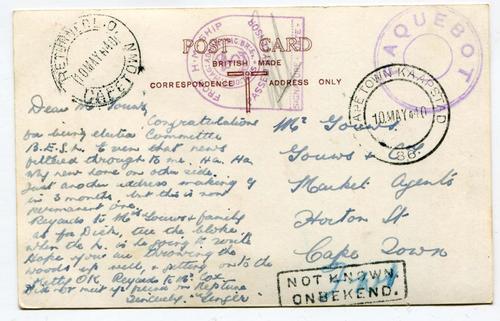 POST CARD
BRITISH MADE
CORRESPONDENCE ADDRESS ONLY
10 MAY
PAQUEBOT
CAPE TOWN KAAPSTAD
10. MAY
Dear Mr
Congratulations
on being elected Committee
B.E.S.L. Even that news
filtered through to me. Ha. Ha
why new home on other side.
Just another address making
in 3 months. but this is now
permanent one.
Regards to & family
as for Dick, tell the bloke
when the h. is he going to write
Hope you are throwing the
woods up well, & getting onto the
Kitty OK. Regards to Mr. Cox
Did not meet yr friend Neptune
Sincerely
Mr Gouws.
Gouws & Co
Market Agents
Horton St
Cape Town
NOT KNOWN
ONBEKEND.